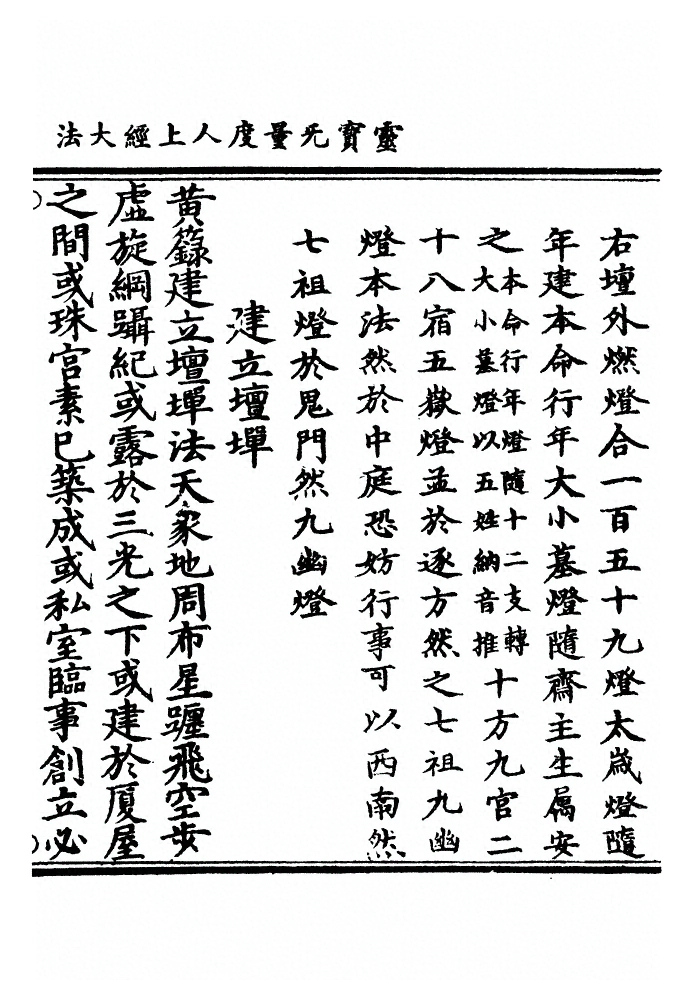 靈寳无量度人上經大法
右壇外燃燈合一百五十九燈太歲燈隨
年建本命行年大小墓燈隨齋主生屬安
之本命行年燈隨十二支轉大小墓燈以五姓納音推十方九宫二
十八宿五嶽燈並於逐方然之七祖九幽
燈本法然於中庭恐妨行事可以西南然
七祖燈於鬼門然九幽燈
建立壇墠
黄籙建立壇墠法天象地周布星躔飛空步
虚旋綱躡紀或露於三光之下或建於厦屋
之間或珠宫素已築成或私室臨事創立必